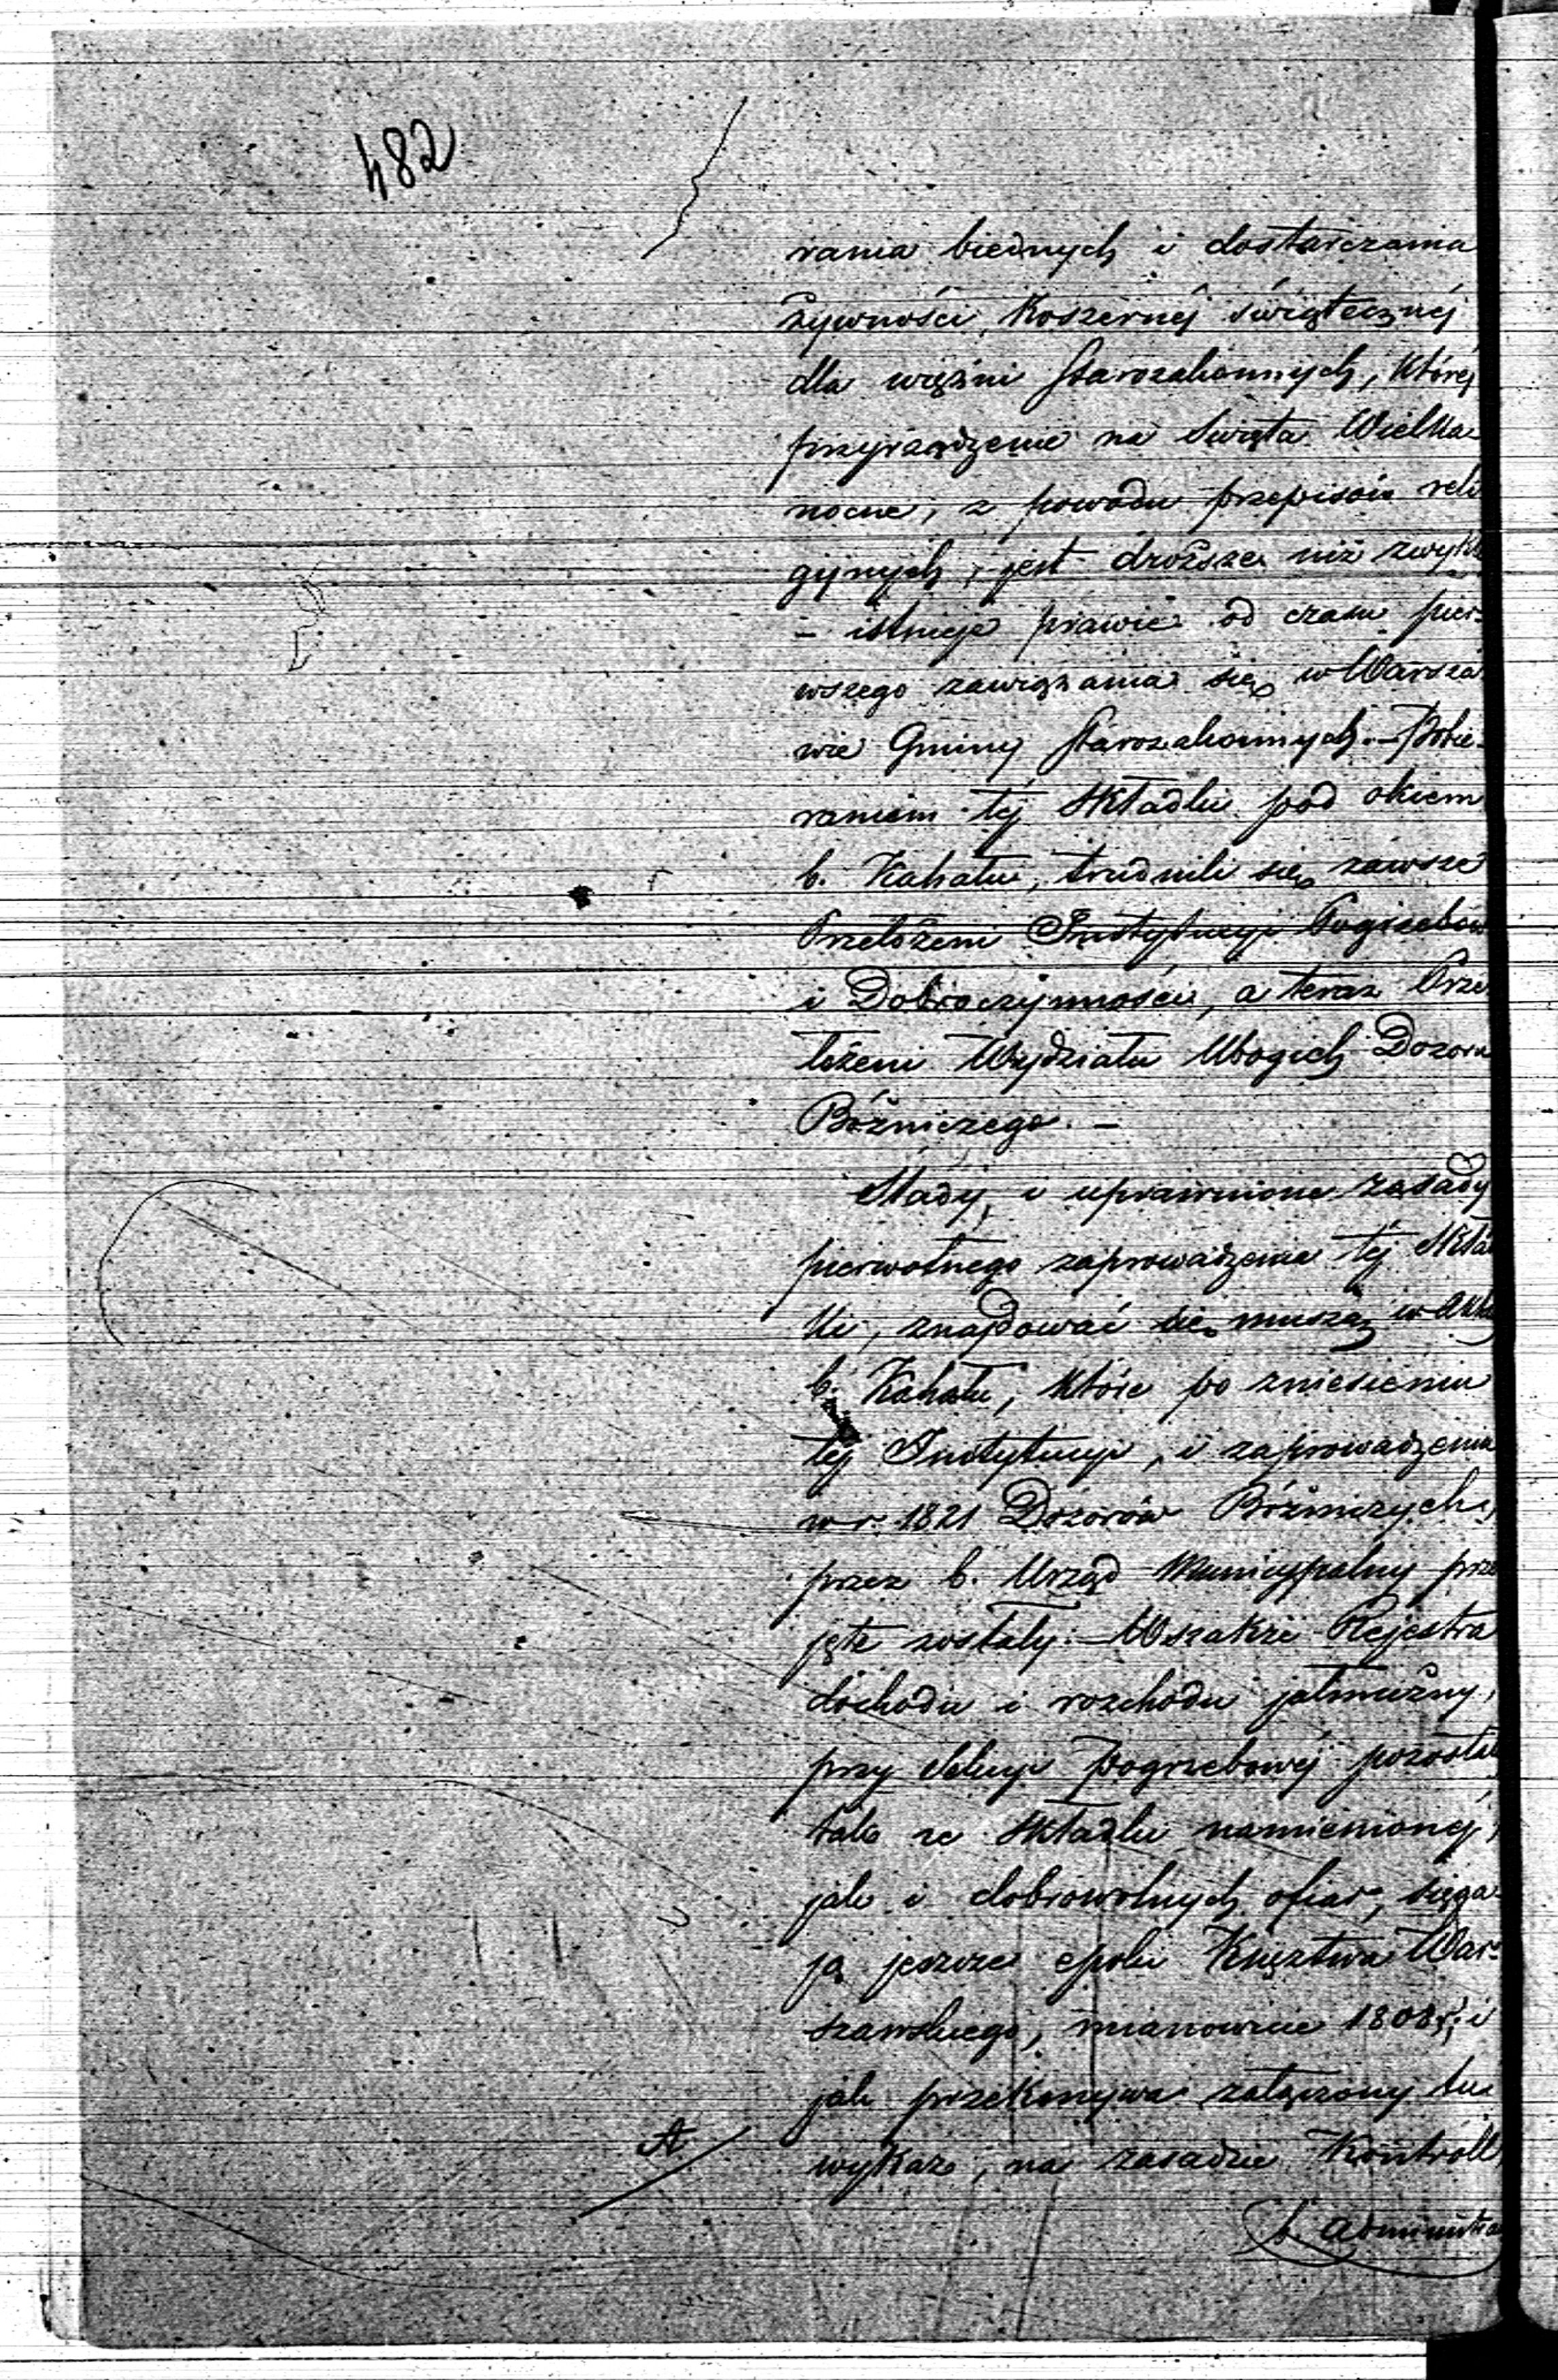 482
rania biednych i dostarczania
żywności Koszernéj świątecznéj
dla więźni Starozakonnych, któréj
przyrządzenie na Święta Wielka-
nocne, z powodu przepisów reli
gijnych, jest droższe niż zwykł
– istnieje prawie od czasu pier-
wszego zawiązania się w Warsza-
wie Gminy Starozakonnych. – Pobie-
raniem téj składki pod okiem
b. Kahału, trudnili się zawsze
Przełożeni Instytucyi Pogrzebów
i Dobroczynności, a teraz Prze
łożeni Wydziału Ubogich Dozoru
Bóżniczego. –
Ślady, i uprawnione zasady
pierwotnego zaprowadzenia téj Skład
ki, znajdować się muszą w Akta
b. Kahału, które po zniesieniu
téj Instytucyi, i zaprowadzeniu
w r. 1821 Dozorów Bóżniczych,
przez b. Urząd Municypalny prze
jęte zostały. – Wszakże Rejestra
dochodu i rozchodu jałmużny,
przy Sekcyi Pogrzebowéj pozostał
tak ze składki namienionéj,
jak i dobrowolnych ofiar, sięga-
ją jeszcze epoki Księztwa War-
szawskiego, mianowicie 1808 r. i
jak przekonywa załączony tu
A
wykaz, na zasadzie Kontroll
b. Administra